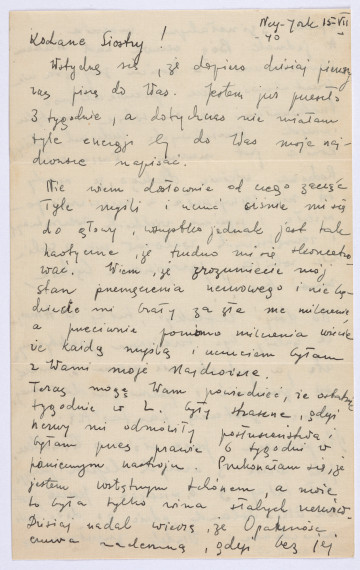 New-York 15 VII
-40
Kochane Siostry!
Wstydzę się, że dopiero dzisiaj pierwszy
raz piszę do Was. Jestem już przeszło
3 tygodnie, a dotychczas nie miałam
tyle energji by do Was moje naj-
droższe napisać.
Nie wiem dosłownie od czego zacząć
Tyle myśli i uczuć ciśnie mi się
do głowy, wszystko jednak jest tak
chaotyczne, że trudno mi się skoncentro
wać. Wiem, że zrozumiecie mój
stan przemęczenia nerwowego i nie bę-
dziecie mi brały za złe me milczenie
a przeciwnie pomimo milczenia wiecie
że każdą myślą i uczuciem byłam
z Wami moje Najdroższe.
Teraz mogę Wam powiedzieć, że ostatnie
tygodnie w L. były straszne, gdyż
nerwy mi odmówiły posłuszeństwa i
byłam przez prawie 6 tygodni w
panicznym nastroju. Przekonałam się, że
jestem wstrętnym tchórzem, a może
to była tylko wina słabych nerwów.
Dzisiaj nadal wierzę, że Opatrzność
czuwa nademną, gdyż bez jej